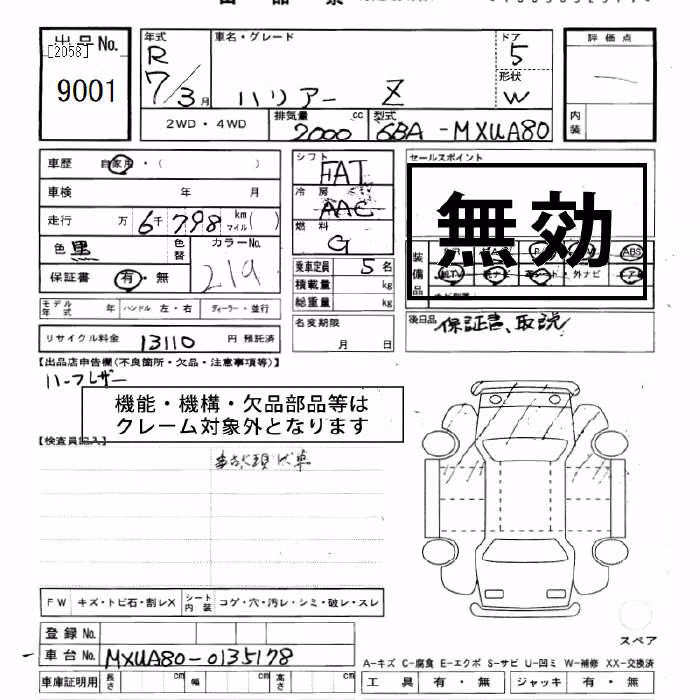 出品No.
[2058]
9001
年式
R
7/3月
車名・グレード
ハリアー Z
ドア
5
形状
W
評価点
内装
2WD・4WD
排気量 2000 cc
型式 6BA-MXUA80
車歴 自家用・( )
車検 年 月
走行 万 6千798 km マイル ( )
色 黒 色替
カラーNo. 219
保証書 有・無
モデル年式 年 ハンドル 左・右 ディーラー・並行
リサイクル料金 13110 円 預託済
シフト FAT
冷房 AAC
燃料 G
乗車定員 5 名
積載量 kg
総重量 kg
名変期限
月 日
セールスポイント
無効
装備品
ABS
後日品 保証書、取説
【出品店申告欄(不良箇所・欠品・注意事項等)】
ハーフレザー
機能・機構・欠品部品等は
クレーム対象外となります
【検査員記入】
事故現状車
FW キズ・トビ石・割レX シート内装 コゲ・穴・汚レ・シミ・破レ・スレ
登録No.
車台No. MXUA80-0135178
車庫証明用 長さ cm 幅 cm 高さ cm
スペア
A-キズ C-腐食 E-エクボ S-サビ U-凹ミ W-補修 XX-交換済
工具 有・無 ジャッキ 有・無